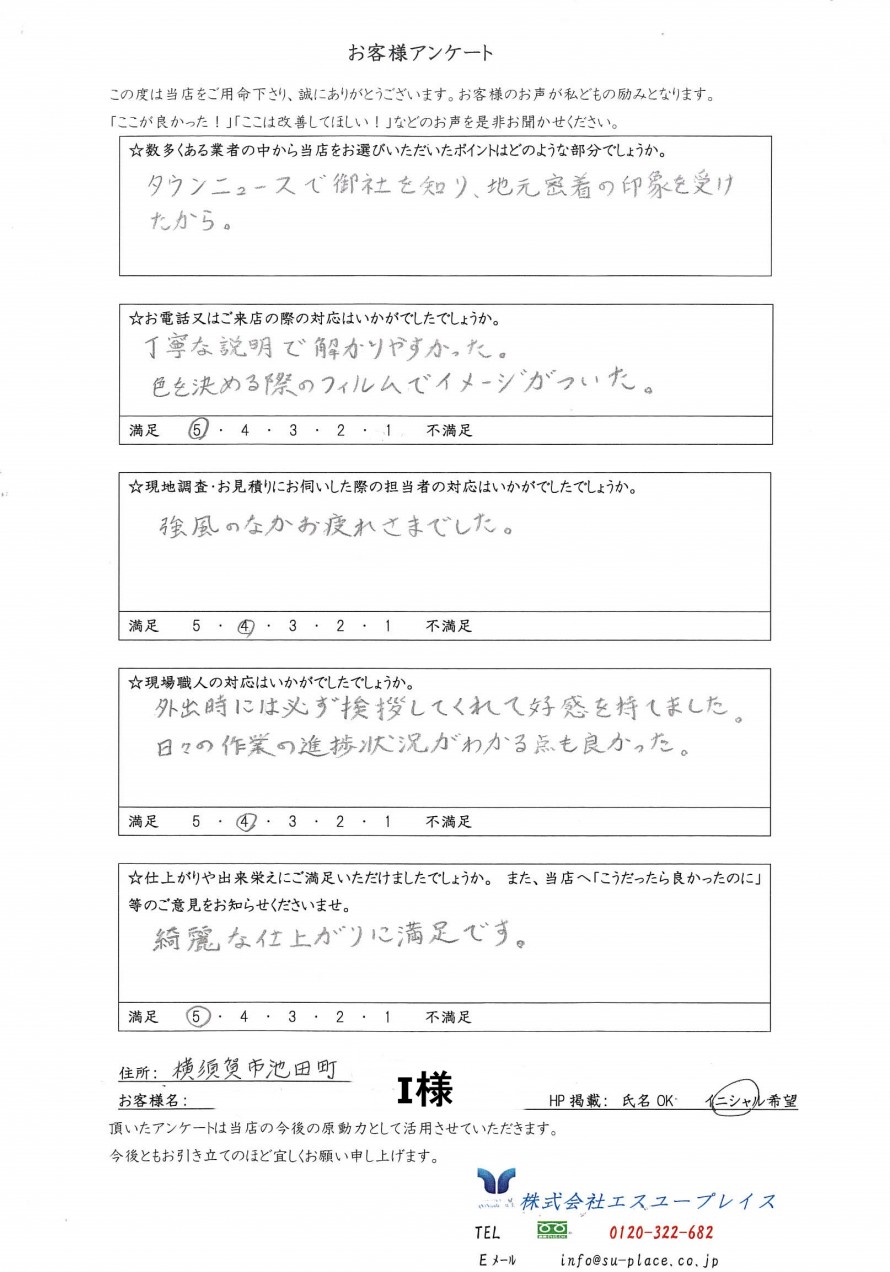 お客様アンケート
この度は当店をご用命下さり、誠にありがとうございます。お客様のお声が私どもの励みとなります。
「ここが良かった！」「ここは改善してほしい！」などのお声を是非お聞かせください。
☆数多くある業者の中から当店をお選びいただいたポイントはどのような部分でしょうか。
タウンニュースで御社を知り、地元密着の印象を受け
たから。
☆お電話又はご来店の際の対応はいかがでしたでしょうか。
丁寧な説明で解かりやすかった。
色を決める際のフィルムでイメージがついた。
満足 5 ・ 4 ・ 3 ・ 2 ・ 1 不満足
☆現地調査・お見積りにお伺いした際の担当者の対応はいかがでしたでしょうか。
強風のなかお疲れさまでした。
満足 5 ・ 4 ・ 3 ・ 2 ・ 1 不満足
☆現場職人の対応はいかがでしたでしょうか。
外出時には必ず挨拶してくれて好感を持てました。
日々の作業の進捗状況がわかる点も良かった。
満足 5 ・ 4 ・ 3 ・ 2 ・ 1 不満足
☆仕上がりや出来栄えにご満足いただけましたでしょうか。 また、当店へ「こうだったら良かったのに」
等のご意見をお知らせくださいませ。
綺麗な仕上がりに満足です。
満足 5 ・ 4 ・ 3 ・ 2 ・ 1 不満足
住所： 横須賀市池田町
お客様名： I様 HP掲載： 氏名OK・ イニシャル希望
頂いたアンケートは当店の今後の原動力として活用させていただきます。
今後ともお引き立てのほど宜しくお願い申し上げます。
株式会社エスユープレイス
TEL 0120-322-682
Eメール info@su-place.co.jp